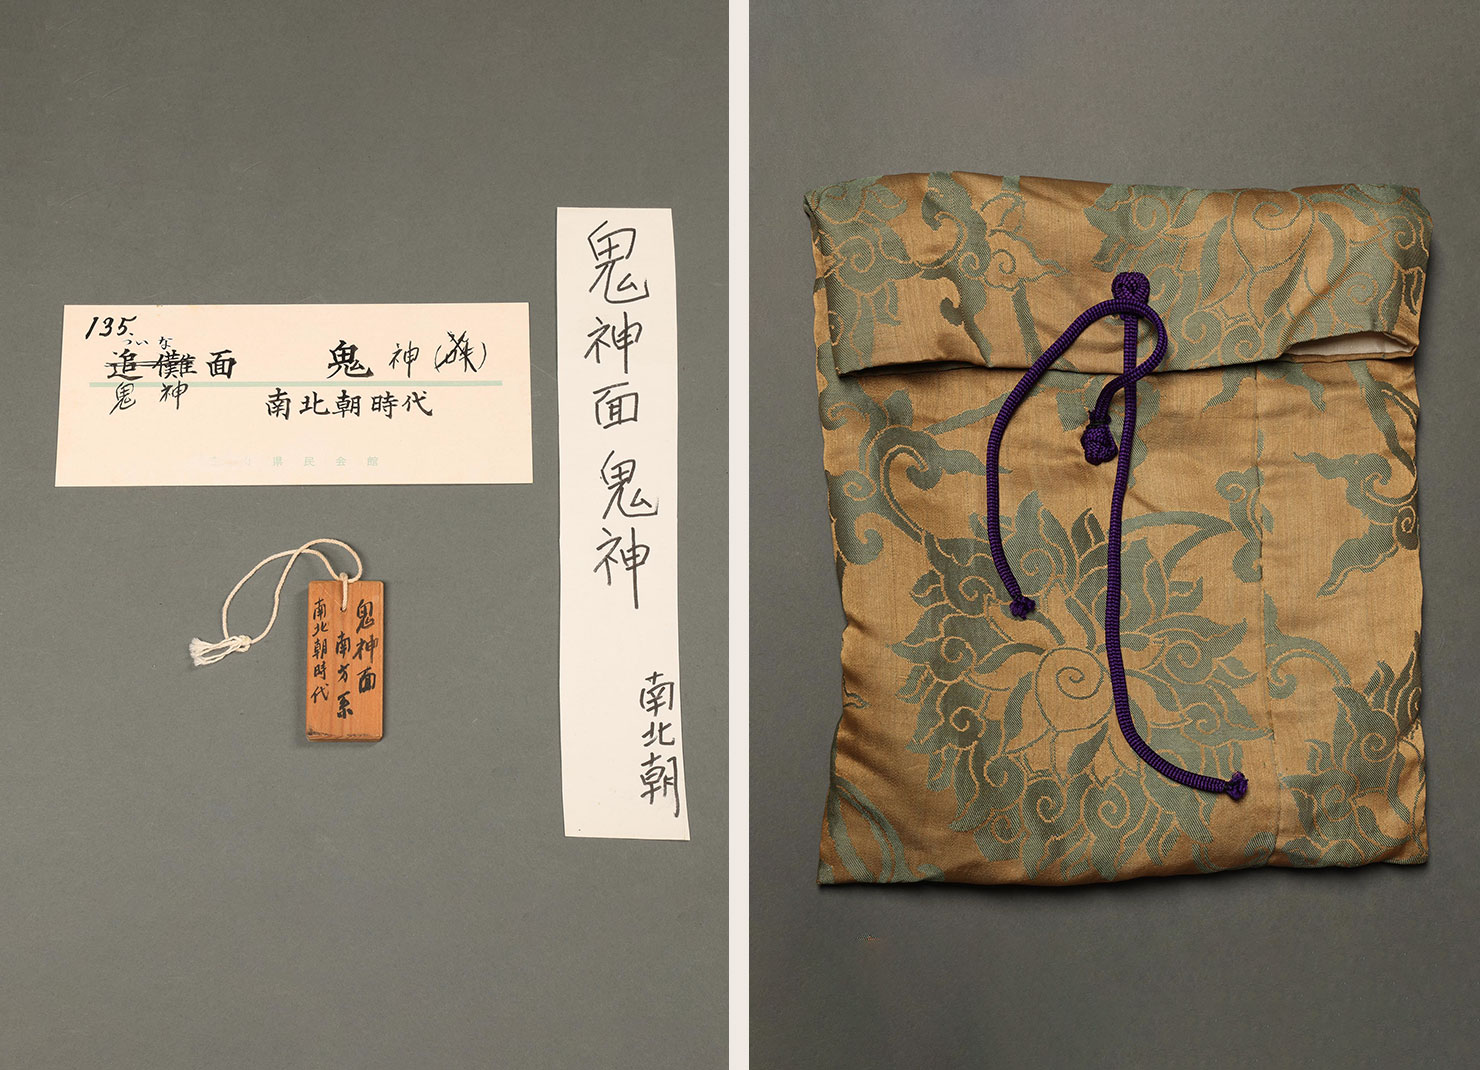 135.
ついな
追儺面 鬼神
鬼神
南北朝時代
県民会館
鬼神面
南方系
南北朝時代
鬼神面 鬼神
南北朝